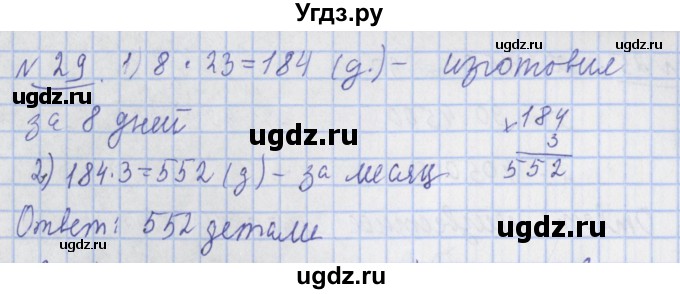 Угдз.ру
№ 29. 1) 8 · 23 = 184 (д.) - изготовил
за 8 дней
2) 184 · 3 = 552 (д) - за месяц
× 184
3
552
Ответ: 552 детали
ugdz.ru
ugdz.ru
ugdz.ru
ugdz.ru
ugdz.ru
ugdz.ru
ugdz.ru
ugdz.ru
ugdz.ru
ugdz.ru